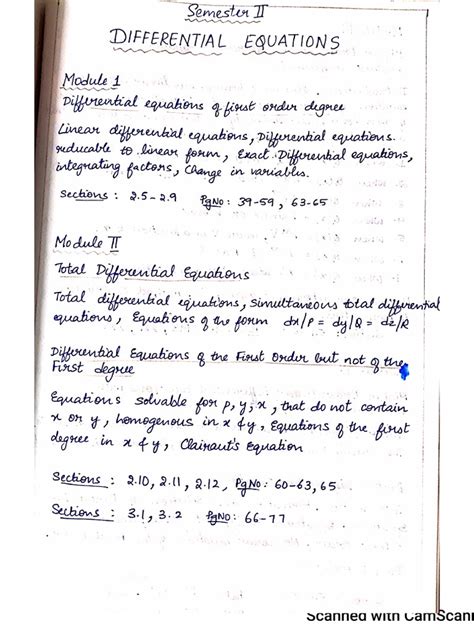 Semester II
DIFFERENTIAL EQUATIONS
Module 1
Differential equations of first order degree
Linear differential equations, Differential equations
reducable to linear form, Exact Differential equations,
integrating factors, Change in variables.
Sections : 2.5-2.9 PgNo: 39-59, 63-65
Module II
Total Differential Equations
Total differential equations, Simultaneous total differential
equations, Equations of the form dx/P = dy/Q = dz/R
Differential Equations of the First Order but not of the
First degree
Equations solvable for p, y, x, that do not contain
x or y, homogenous in x & y, Equations of the first
degree in x & y, Clairaut's Equation
Sections : 2.10, 2.11, 2.12, PgNo: 60-63, 65
Sections : 3.1, 3.2 PgNo: 66-77
Scanned with CamScan